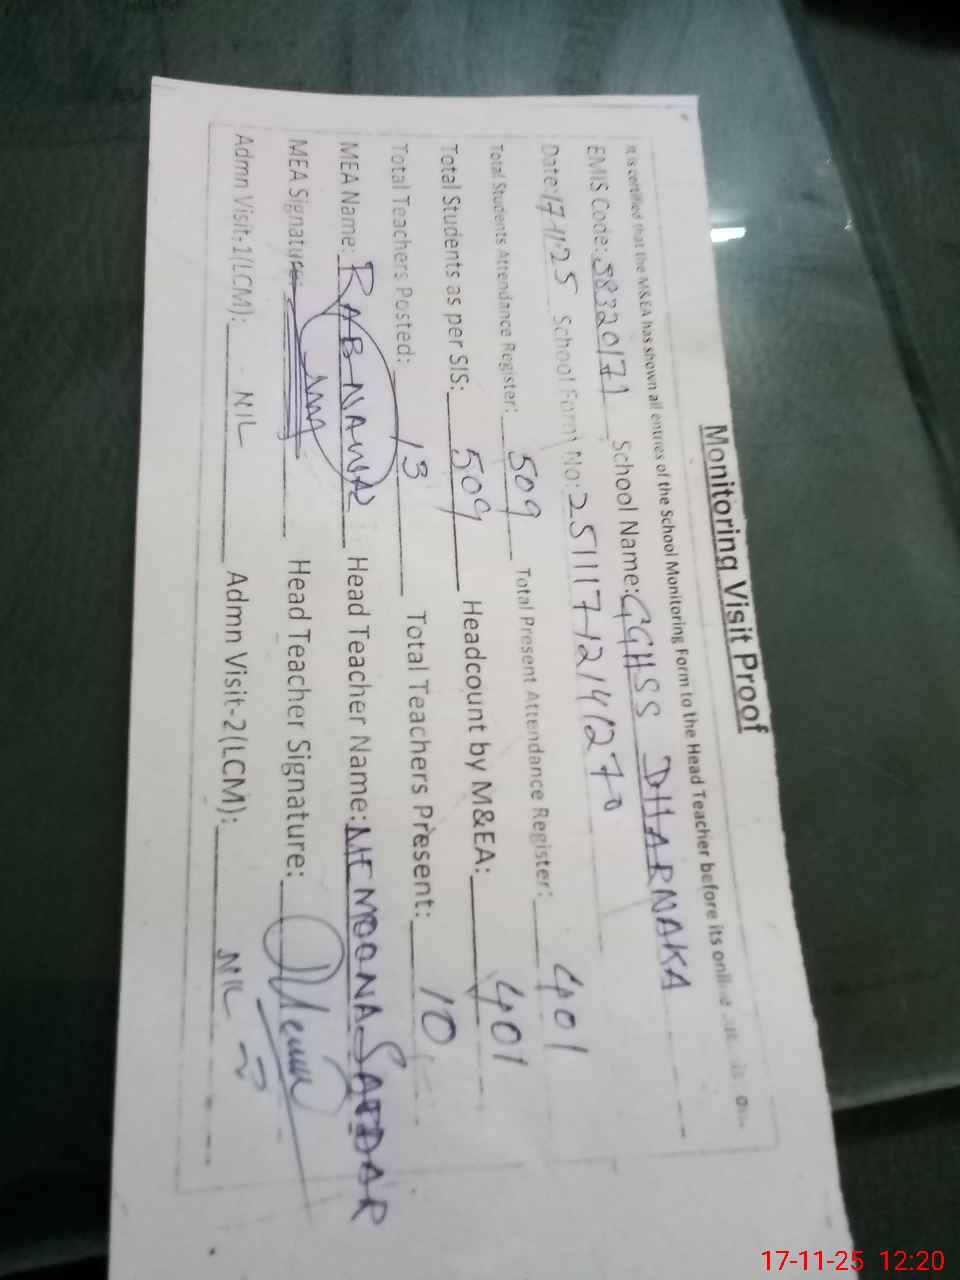 Monitoring Visit Proof
It is certified that the M&EA has shown all entries of the School Monitoring Form to the Head Teacher before its online
EMIS Code: 38320171 School Name: GGHSS DHARNAKA
Date: 17-11-25 School Form No: 251117-12141270
Total Students Attendance Register: 509 Total Present Attendance Register: 401
Total Students as per SIS: 509 Headcount by M&EA: 401
Total Teachers Posted: 13 Total Teachers Present: 10
MEA Name: RAB NAWAZ Head Teacher Name: MEMOONA SAFDAR
MEA Signature: Head Teacher Signature:
Admn Visit-1(LCM): NIL Admn Visit-2(LCM): NIL
17-11-25 12:20